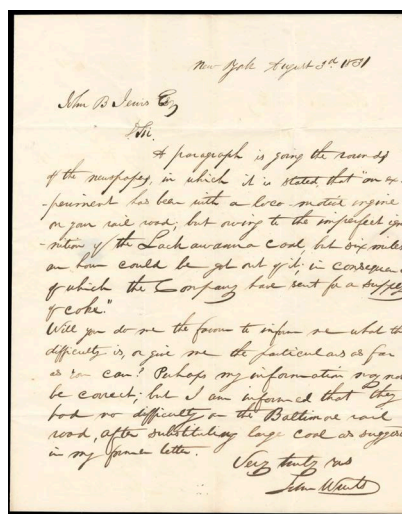 New York August 3rd 1831
John B Jervis Esq
D Sir.
A paragraph is going the rounds
of the newspapers, in which it is stated, that "an ex
-periment has been with a loco-motive engine
on your rail road, but owing to the imperfect ig
-nition of the Lackawanna coal but six miles
an hour could be got out of it, in consequen
of which the Company had sent for a supply
of coke."
Will you do me the favour to inform me what th
difficulty is, or give me the particulars as far
as you can? Perhaps my information may no
be correct; but I am informed that they
had no difficulty on the Baltimore rail
road, after substituting large coal as sugges
in my former letter.
Very truly
John